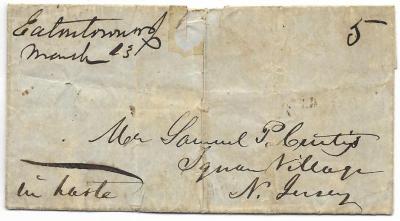 Eatontown NJ
March 13
5
Mr Samuel P. Curtis
Squan Village
N. Jersey
in haste